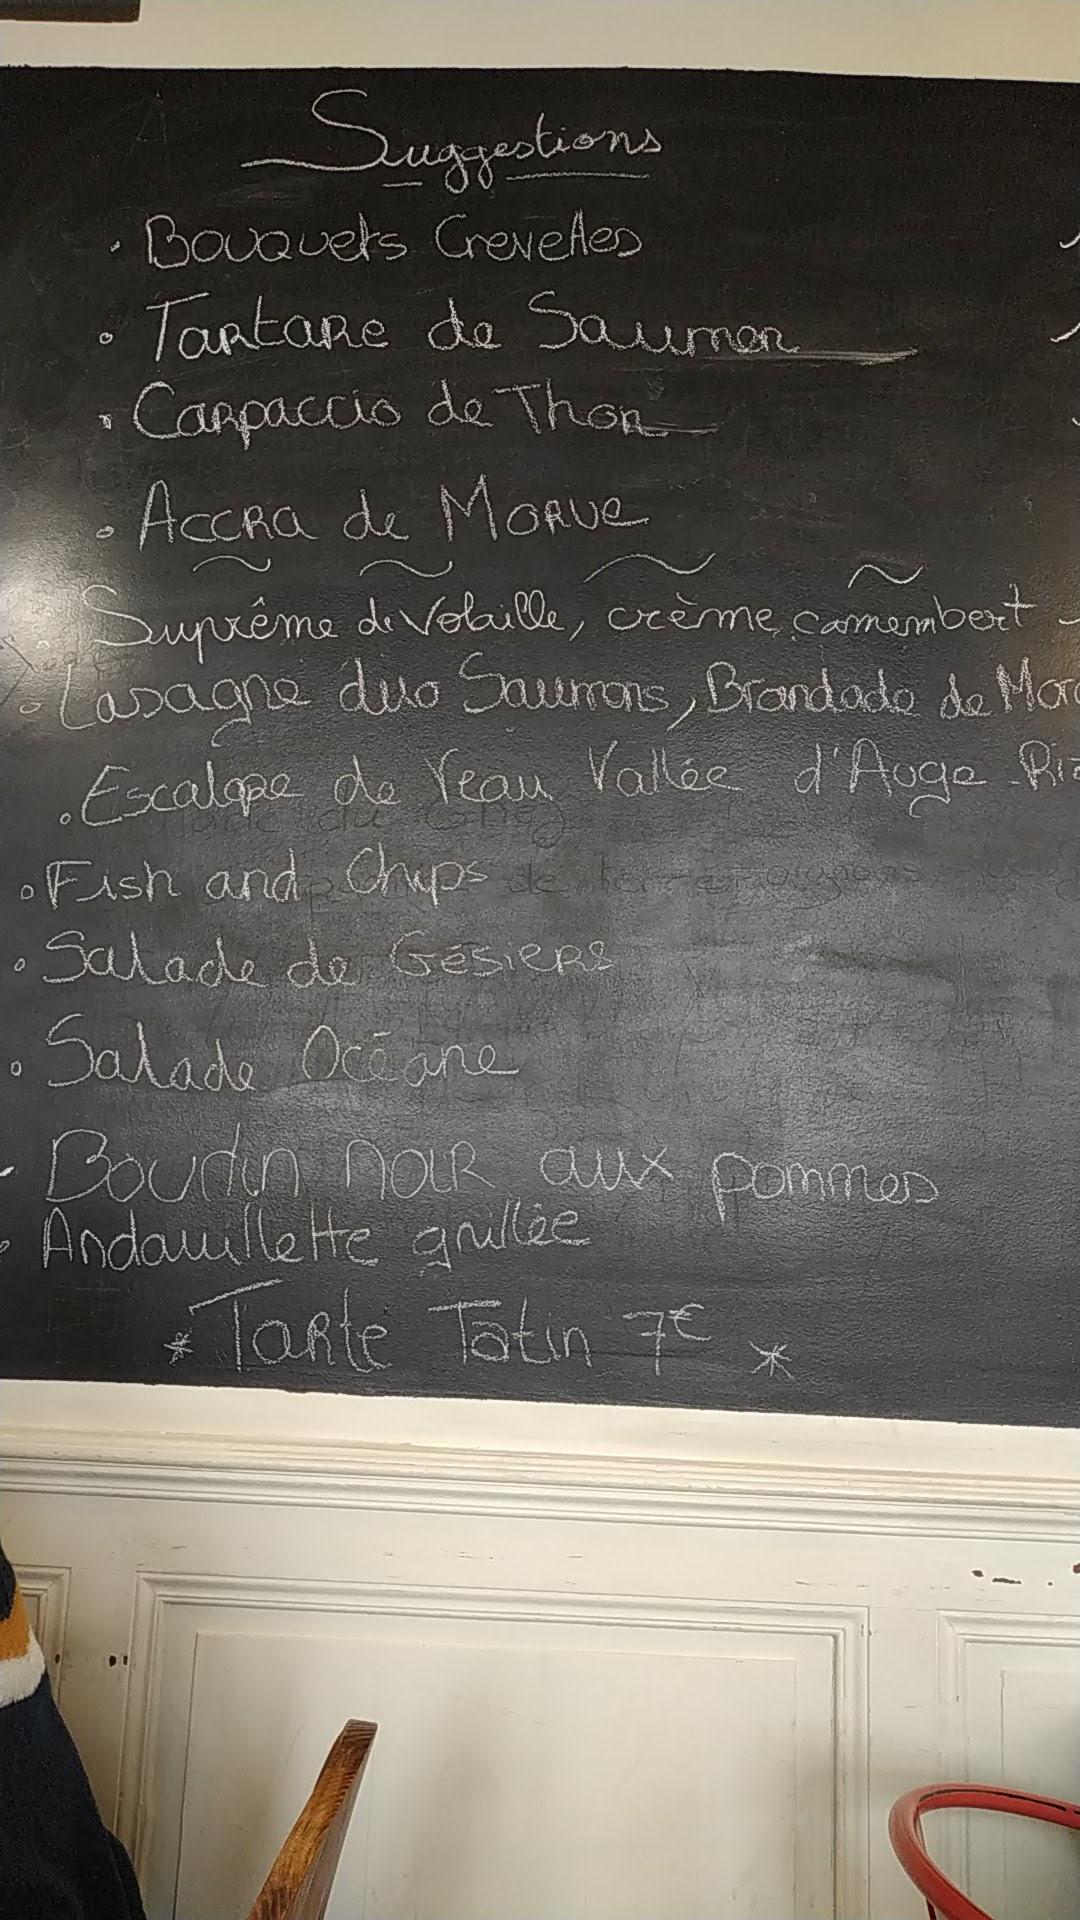 Suggestions
• Bouquets Crevettes
• Tartare de Saumon
• Carpaccio de Thon
• Accra de Morue
• Suprême de Volaille, crème camembert
• Lasagne duo Saumons, Brandade de Moru
• Escalope de Veau Vallée d'Auge - Riz
• Fish and Chips
• Salade de Gésiers
• Salade Océane
- Boudin noir aux pommes
• Andouillette grillée
* Tarte Tatin 7€ *